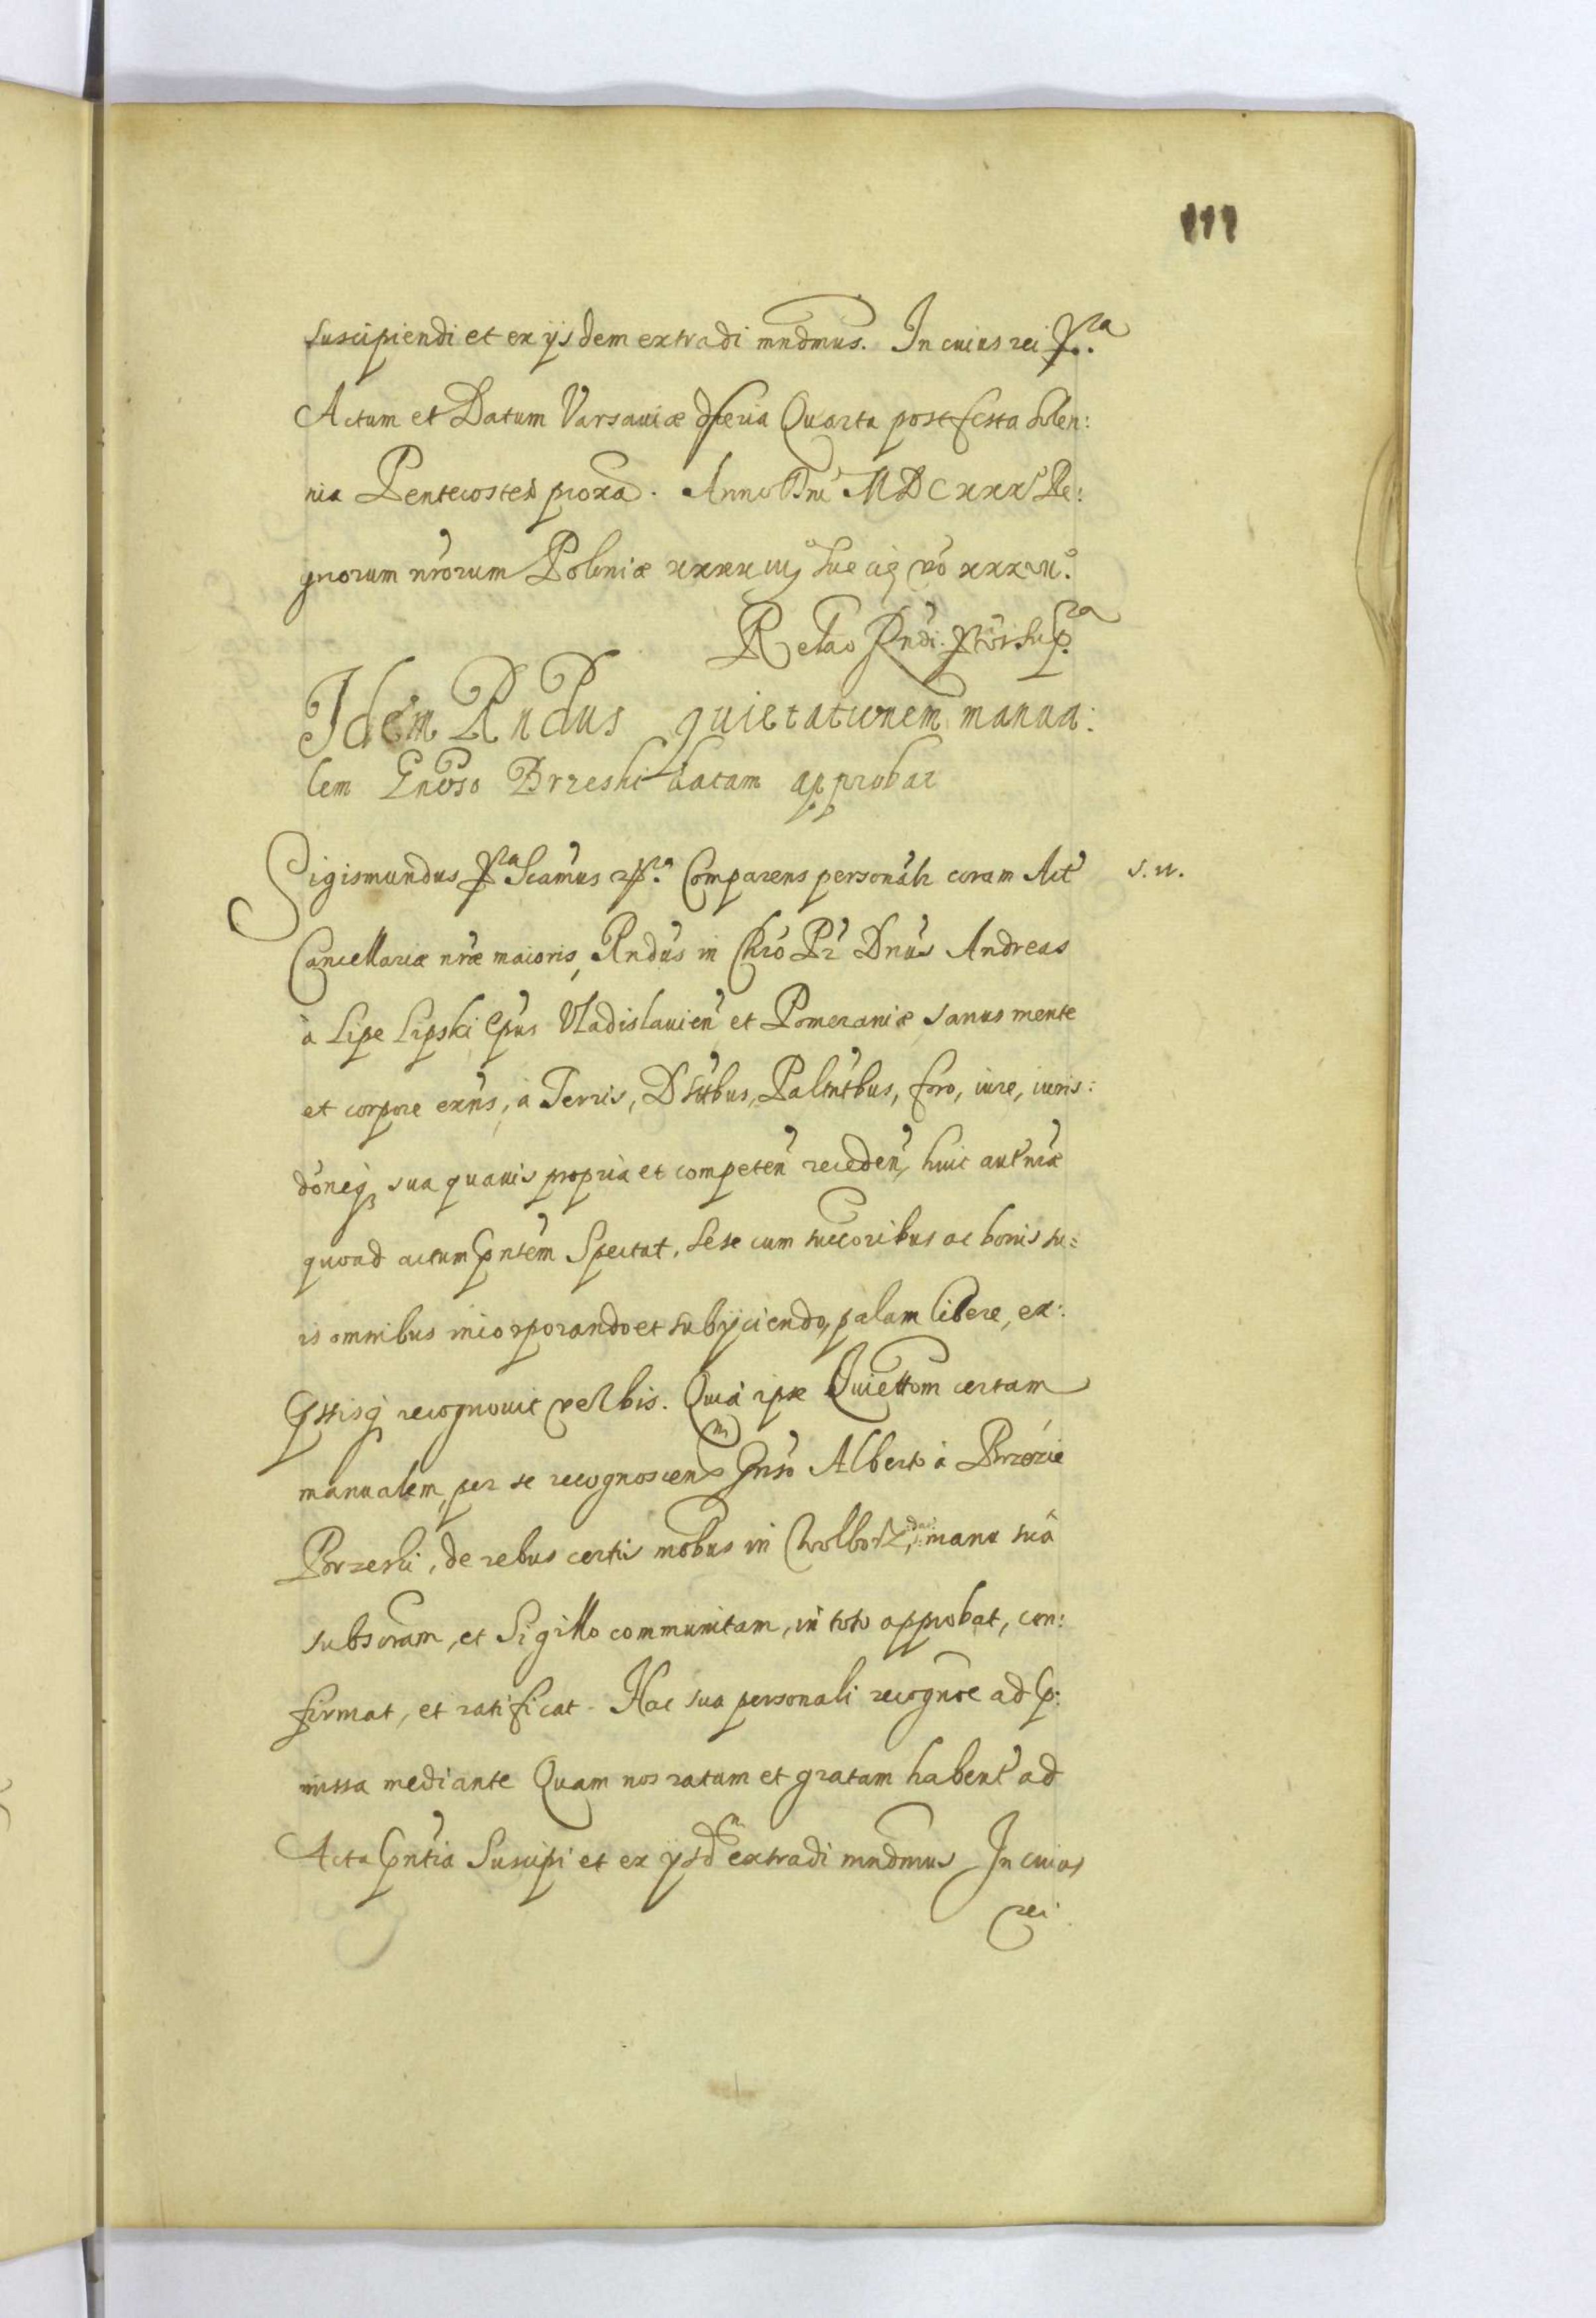 111
suscipiendi et ex ijsdem extradi mndmus. In cuius rei p.ra
Actum et Datum Varsauiæ feria Quarta post festa solen:
nia Pentecostes proxa. Anno Dni MDCXXX Re:
gnorum nrorum Poloniæ xxxxiij Sueciæ vo xxxvii.o
Relao Rndi. ut sup.ra
Idem Rndus quietationem manua:
lem Gnoso Brzeski datam approbat
Sigismundus p.ra Scamus p.ra Comparens personalr coram Act
s. n.
Cancellariæ nræ maioris, Rndus in Chro Pr Dnus Andreas
à Lipe Lipski Epus Vladislauien et Pomeraniæ sanus mente
et corpore exns, à Terris, Dstrbus, Paltntbus, foro, iure, iuris:
doneq sua quauis propria et competen receden, huic aut nræ
quoad actum pntem spectat, sese cum succoribus ac bonis su:
is omnibus incorporando et subijciendo, palam libere, ex:
pssisq recognouit verbis. Quia ipse Quiettom certam
manualem, per se recognoscenm Gnso Alberto à Brzezie
Brzeski, de rebus certis mobus in Wolborz, manu suâ
subscram, et Sigillo communitam, in toto approbat, con:
firmat, et ratificat. Hac sua personali recogne ad p:
missa mediante Quam nos ratam et gratam habent ad
Acta pntia Suscipi et ex ijsdm extradi mndmus In cuius
rei